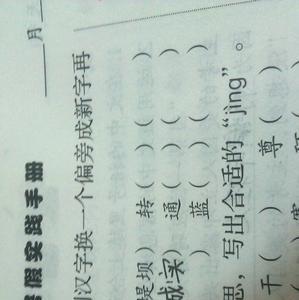 假实践手册 月
汉字换一个偏旁成新字再
堤坝) 转( ) ( )
实) 通( ) ( )
蓝( ) ( )
思,写出合适的“jìng”。
干( ) 尊( )